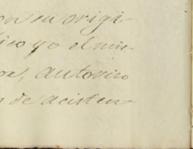 on su origi-
ico yo el mis-
es, autorizo
de acisten-